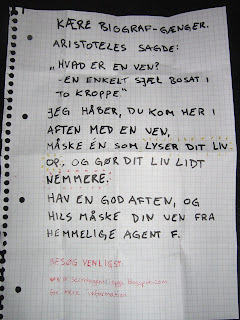 KÆRE BIOGRAF-GÆNGER.
ARISTOTELES SAGDE:
„HVAD ER EN VEN?
-EN ENKELT SJÆL BOSAT I
TO KROPPE"
JEG HÅBER, DU KOM HER I
AFTEN MED EN VEN,
MÅSKE ÉN SOM LYSER DIT LIV
OP, OG GØR DIT LIV LIDT
NEMMERE.
HAV EN GOD AFTEN, OG
HILS MÅSKE DIN VEN FRA
HEMMELIGE AGENT F.
BESØG VENLIGST:
for mere information